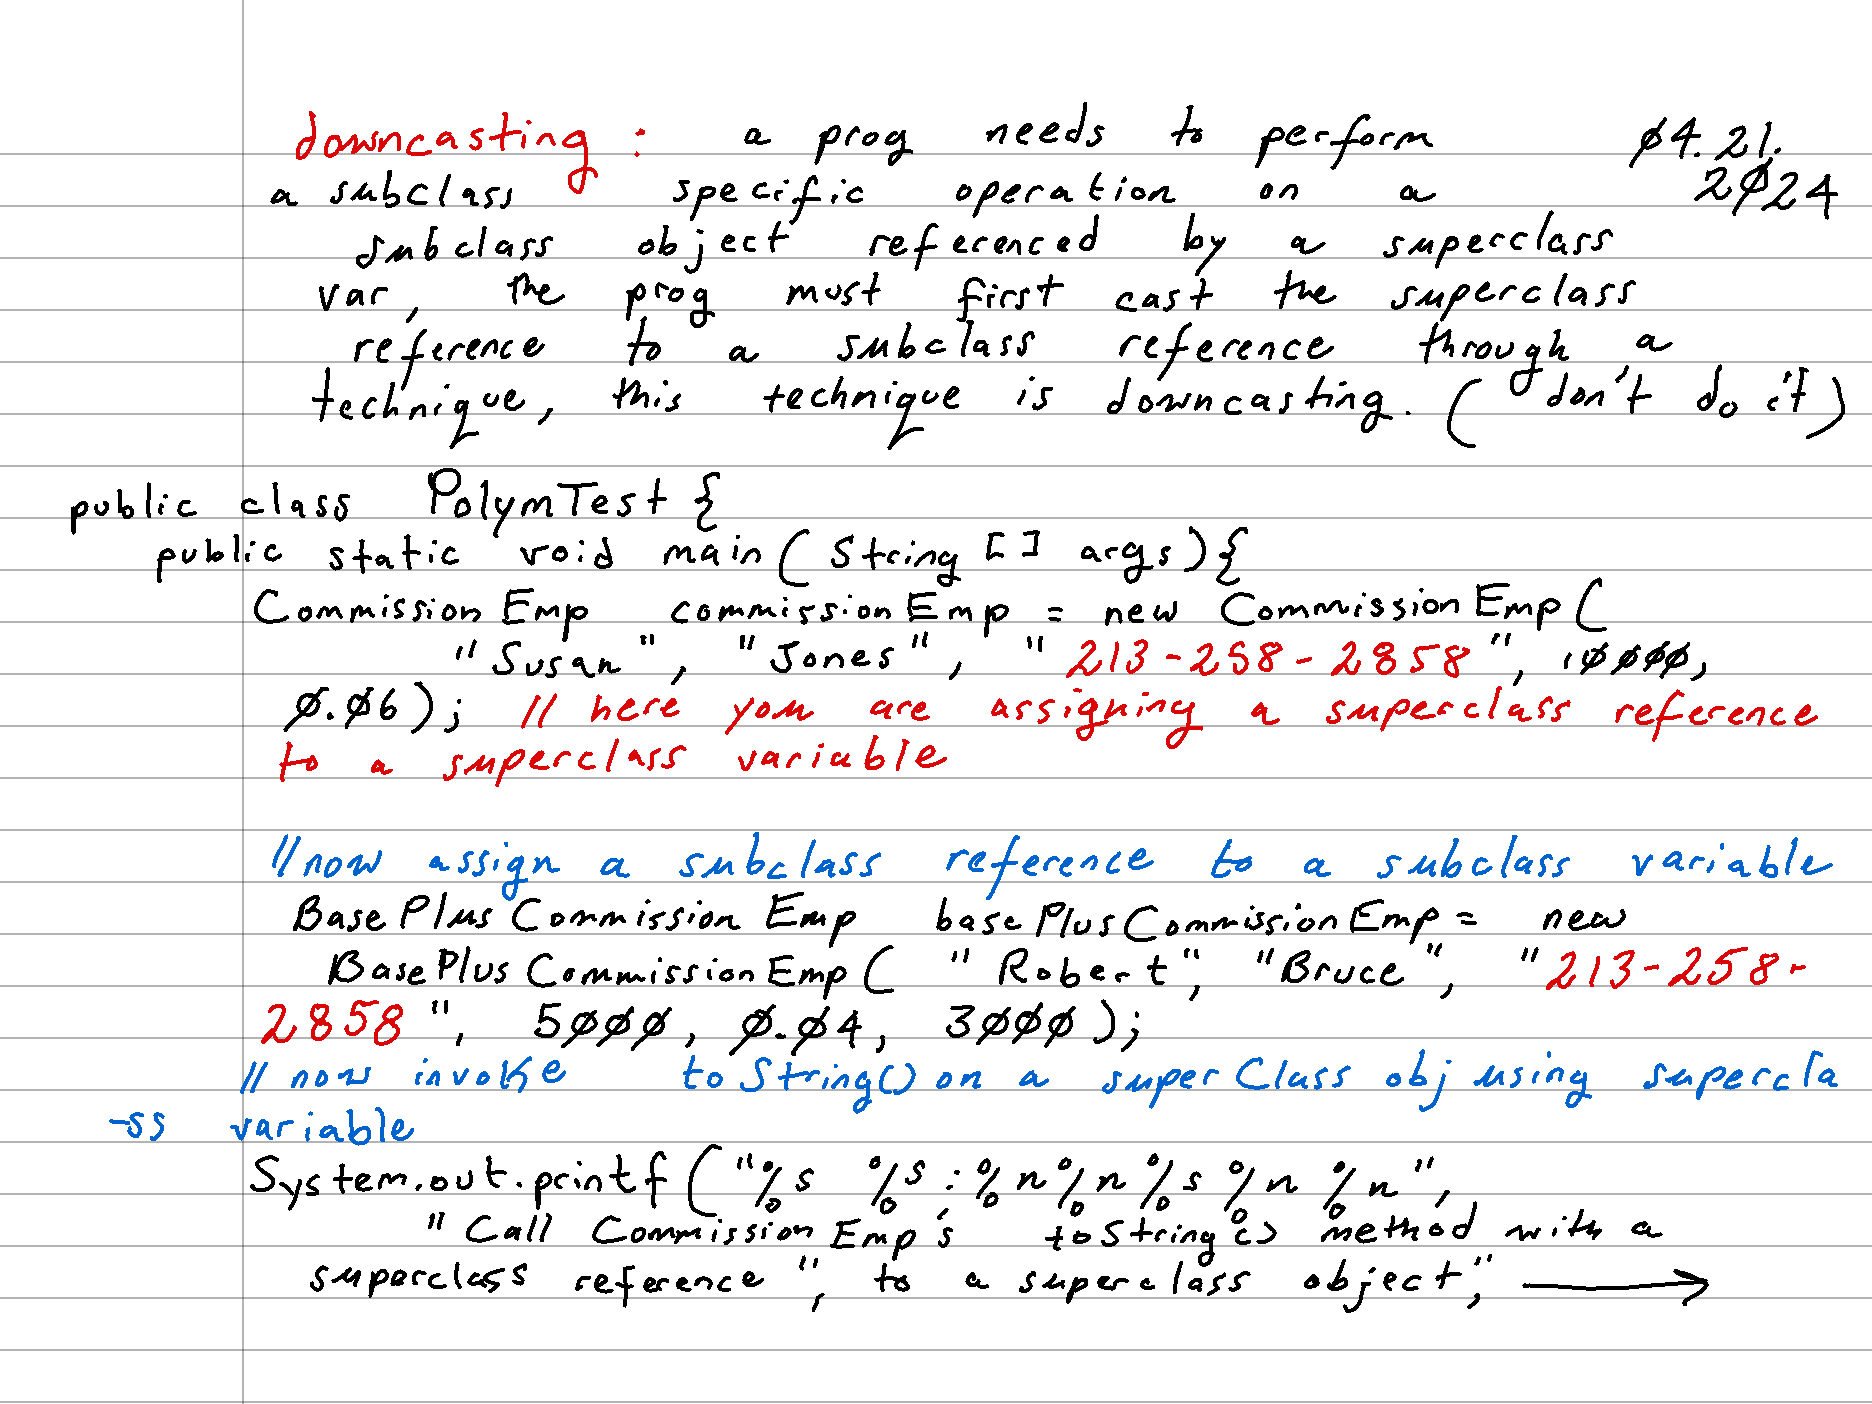 downcasting : a prog needs to perform 04.21.
a subclass specific operation on a 2024
subclass object referenced by a superclass
var, the prog must first cast the superclass
reference to a subclass reference through a
technique, this technique is downcasting. (don't do it)
public class PolymTest {
public static void main( String [] args){
CommissionEmp commissionEmp = new CommissionEmp(
"Susan", "Jones", "213-258-2858", 10000,
0.06); // here you are assigning a superclass reference
to a superclass variable
//now assign a subclass reference to a subclass variable
BasePlusCommissionEmp basePlusCommissionEmp = new
BasePlusCommissionEmp( "Robert", "Bruce", "213-258-
2858", 5000, 0.04, 3000);
// now invoke toString() on a superClass obj using supercla
-ss variable
System.out.printf("%s %s:%n%n%s%n%n",
"Call CommissionEmp's toString() method with a
superclass reference", to a superclass object",